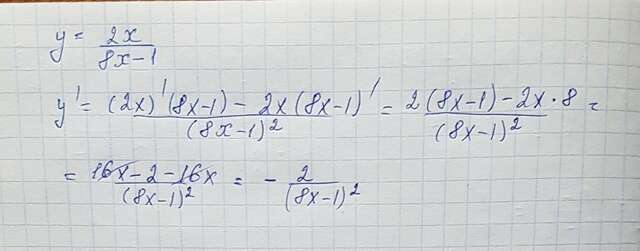 y = 2x / 8x-1
y' = (2x)'(8x-1) - 2x(8x-1)' / (8x-1)² = 2(8x-1) - 2x·8 / (8x-1)² =
= 16x-2-16x / (8x-1)² = - 2 / (8x-1)²